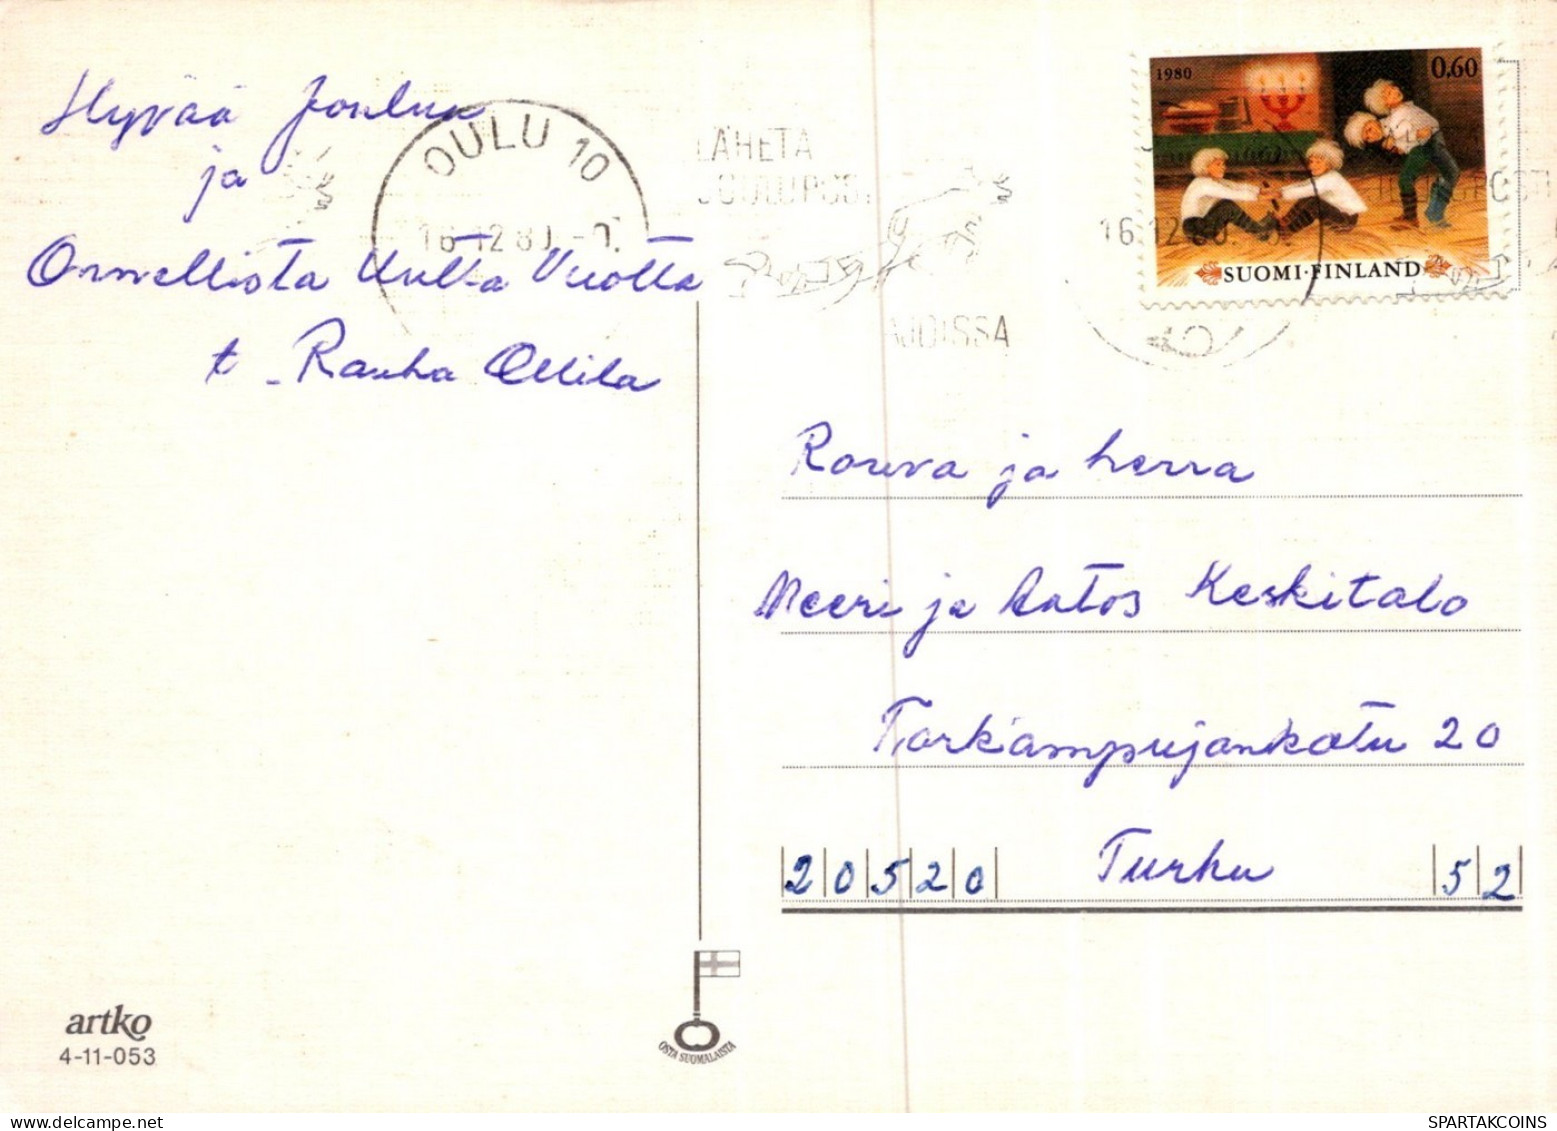 Hyvää Joulua
ja
Onnellista Uutta Vuotta
t. Rauha Ollila
OULU 10
16.12.80.
LÄHETÄ
JOULUPOSTI
AJOISSA
1980
0,60
16.12.80.
SUOMI·FINLAND
Rouva ja herra
Meeri ja Aatos Keskitalo
Torkampujankatu 20
20520 Turku 52
artko
4-11-053
OSTA SUOMALAISTA
SPARTAKCOINS